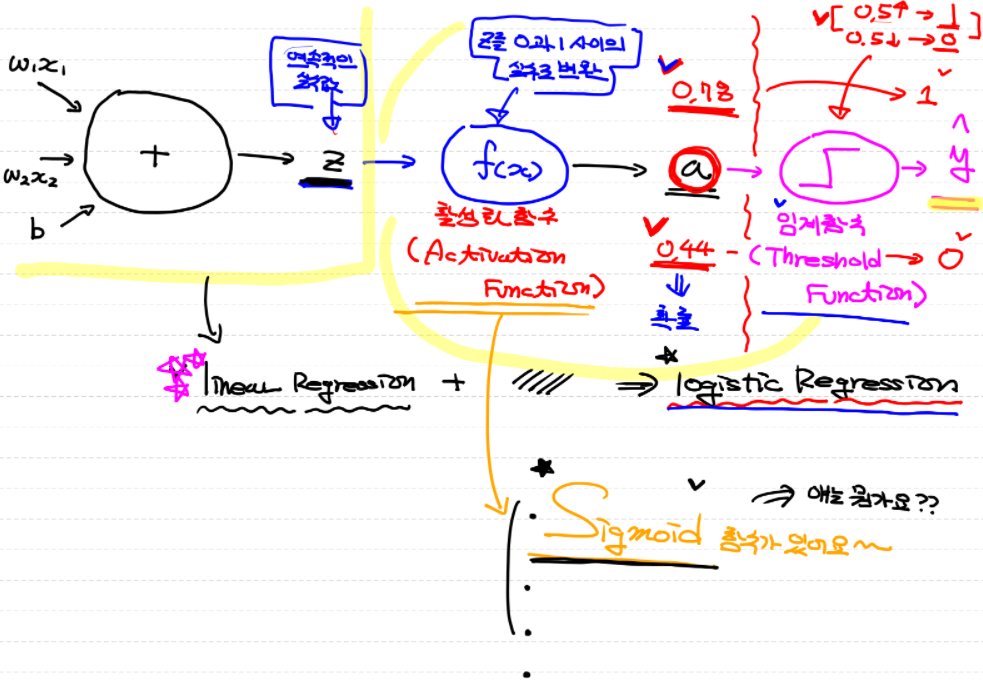 w₁x₁
w₂x₂
b
+
연속적인
실수값
z
z를 0과 1 사이의
실수로 변환
f(x)
활성화 함수
(Activation
Function)
0.78
a
0.44
확률
[ 0.5↑ → 1
0.5↓ → 0 ]
1
ŷ
임계함수
(Threshold → 0
Function)
linear Regression + //// ⇒ logistic Regression
Sigmoid 함수가 있어요~
⇒ 얘는 뭔가요??